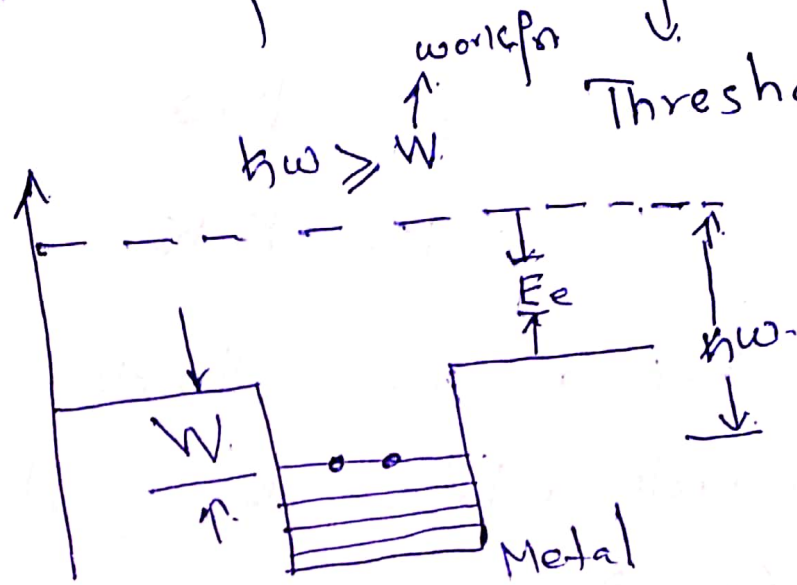 workfn
Thresh
ħω ≥ W.
Ee
ħω
W
Metal